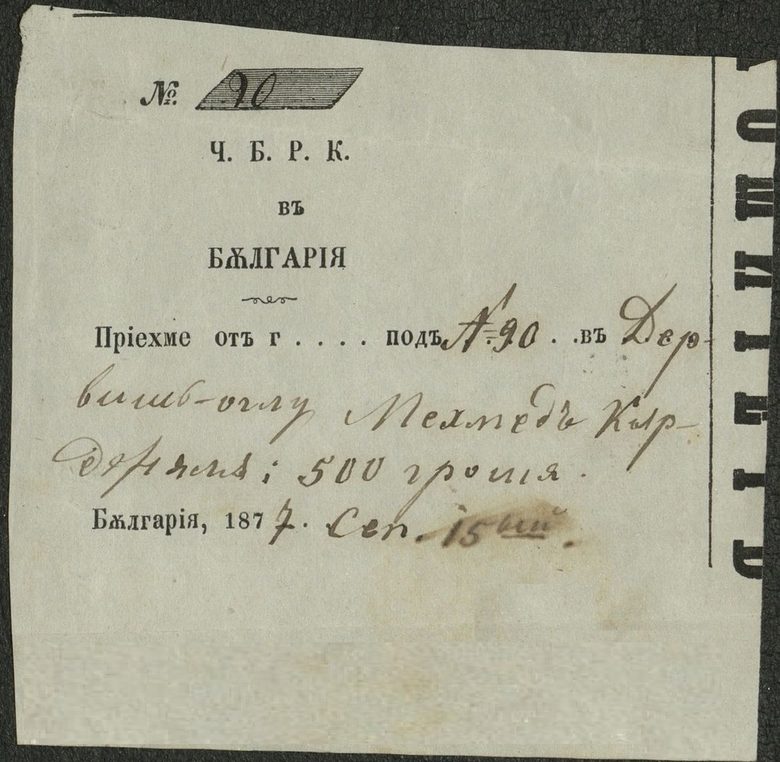 №. 90
Ч. Б. Р. К.
въ
БѪЛГАРІЯ
Пріехме отъ г . . . . подъ № 90 . . въ Дер-
вишь-оглу Мехмедъ Кыр-
500 гроша.
Бѫлгарія, 1877. Сеп. 15 ый.
ОМИТЕТЪ